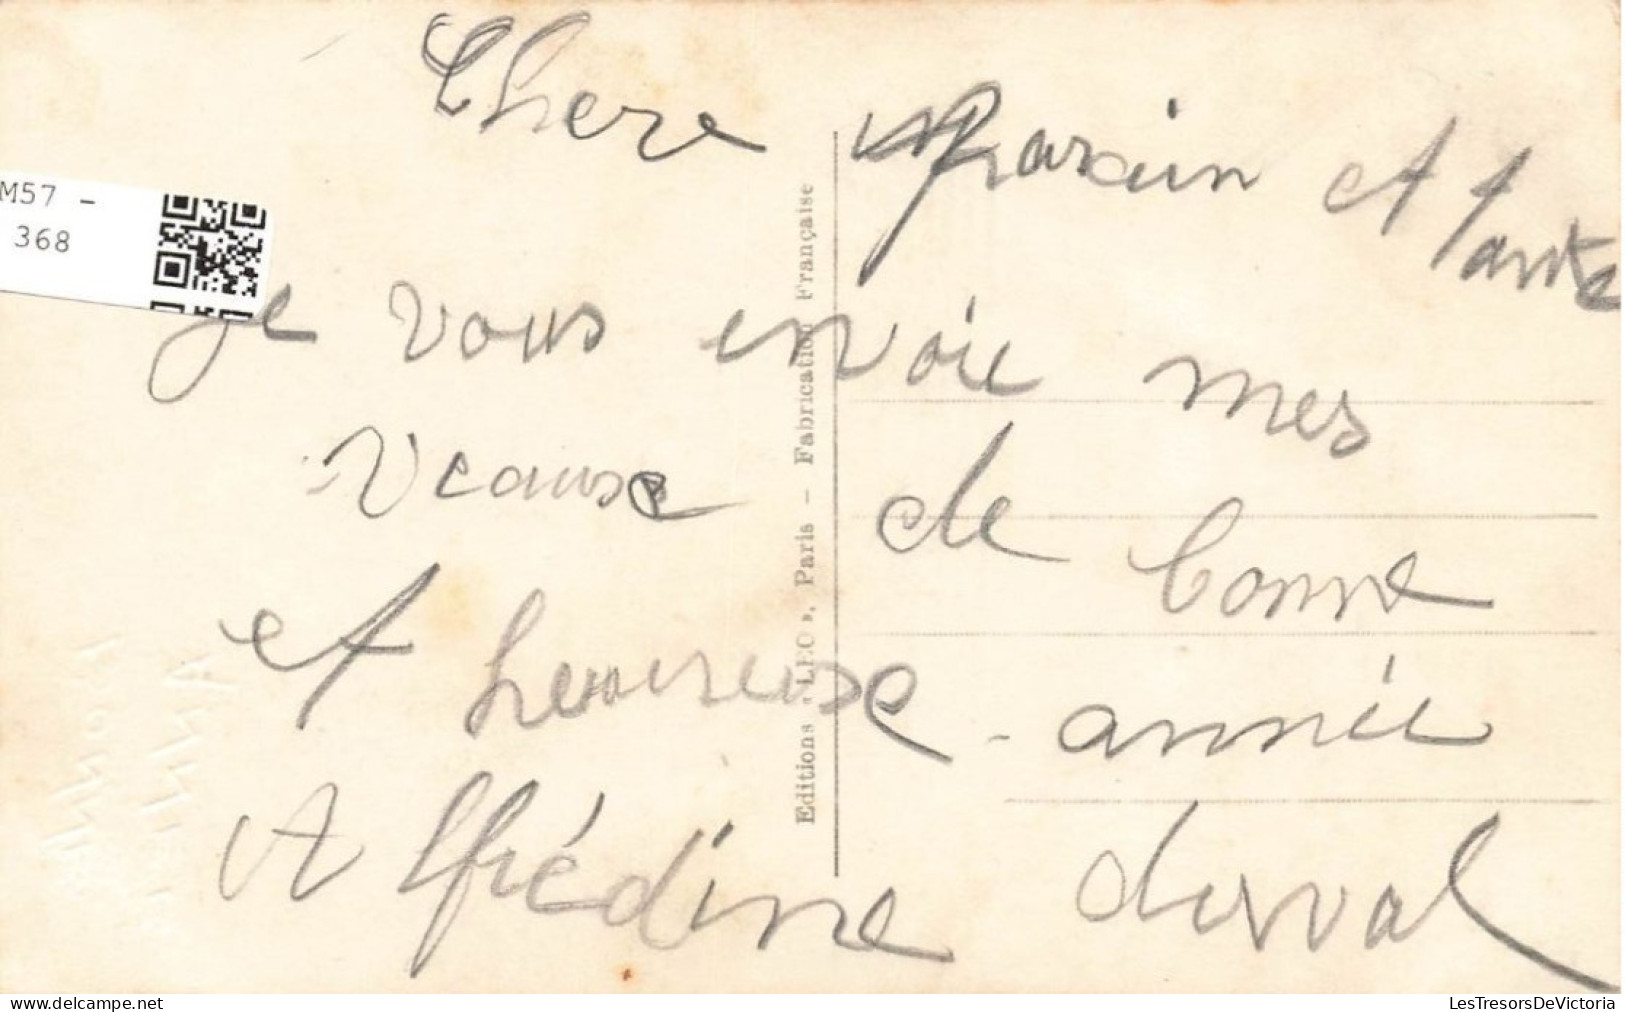 Chere Parain et tante
je vous envoie mes
veause de bonne
et heureuse - année
Alfrédine derval
Editions « LEO », Paris — Fabrication Française
BONNE
ANNEE
M57 -
368
LesTresorsDeVictoria
www.delcampe.net